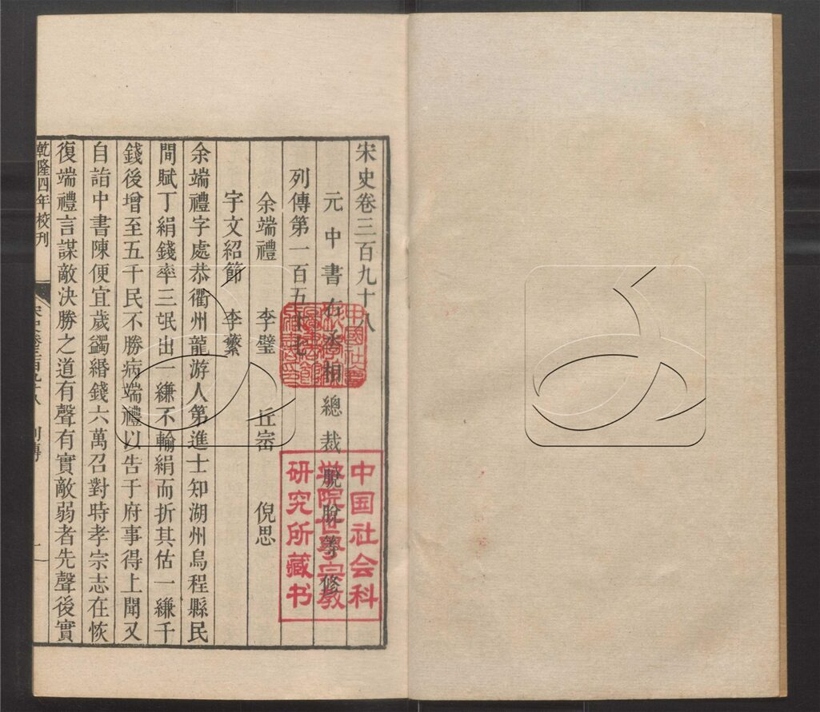 宋史卷三百九十八
元中書右丞相總裁脫脫等修
列傳第一百五十七
余端禮 李壁 丘崈 倪思
宇文紹節 李蘩
余端禮字處恭衢州龍游人第進士知湖州烏程縣民
間賦丁絹錢率三氓出一縑不輸絹而折其估一縑千
錢後增至五千民不勝病端禮以告于府事得上聞又
自詣中書陳便宜歲蠲緡錢六萬召對時孝宗志在恢
復端禮言謀敵決勝之道有聲有實敵弱者先聲後實
乾隆四年校刊
宋史卷三百九十八 列傳 一
中国社会科
学院世界宗教
研究所藏书